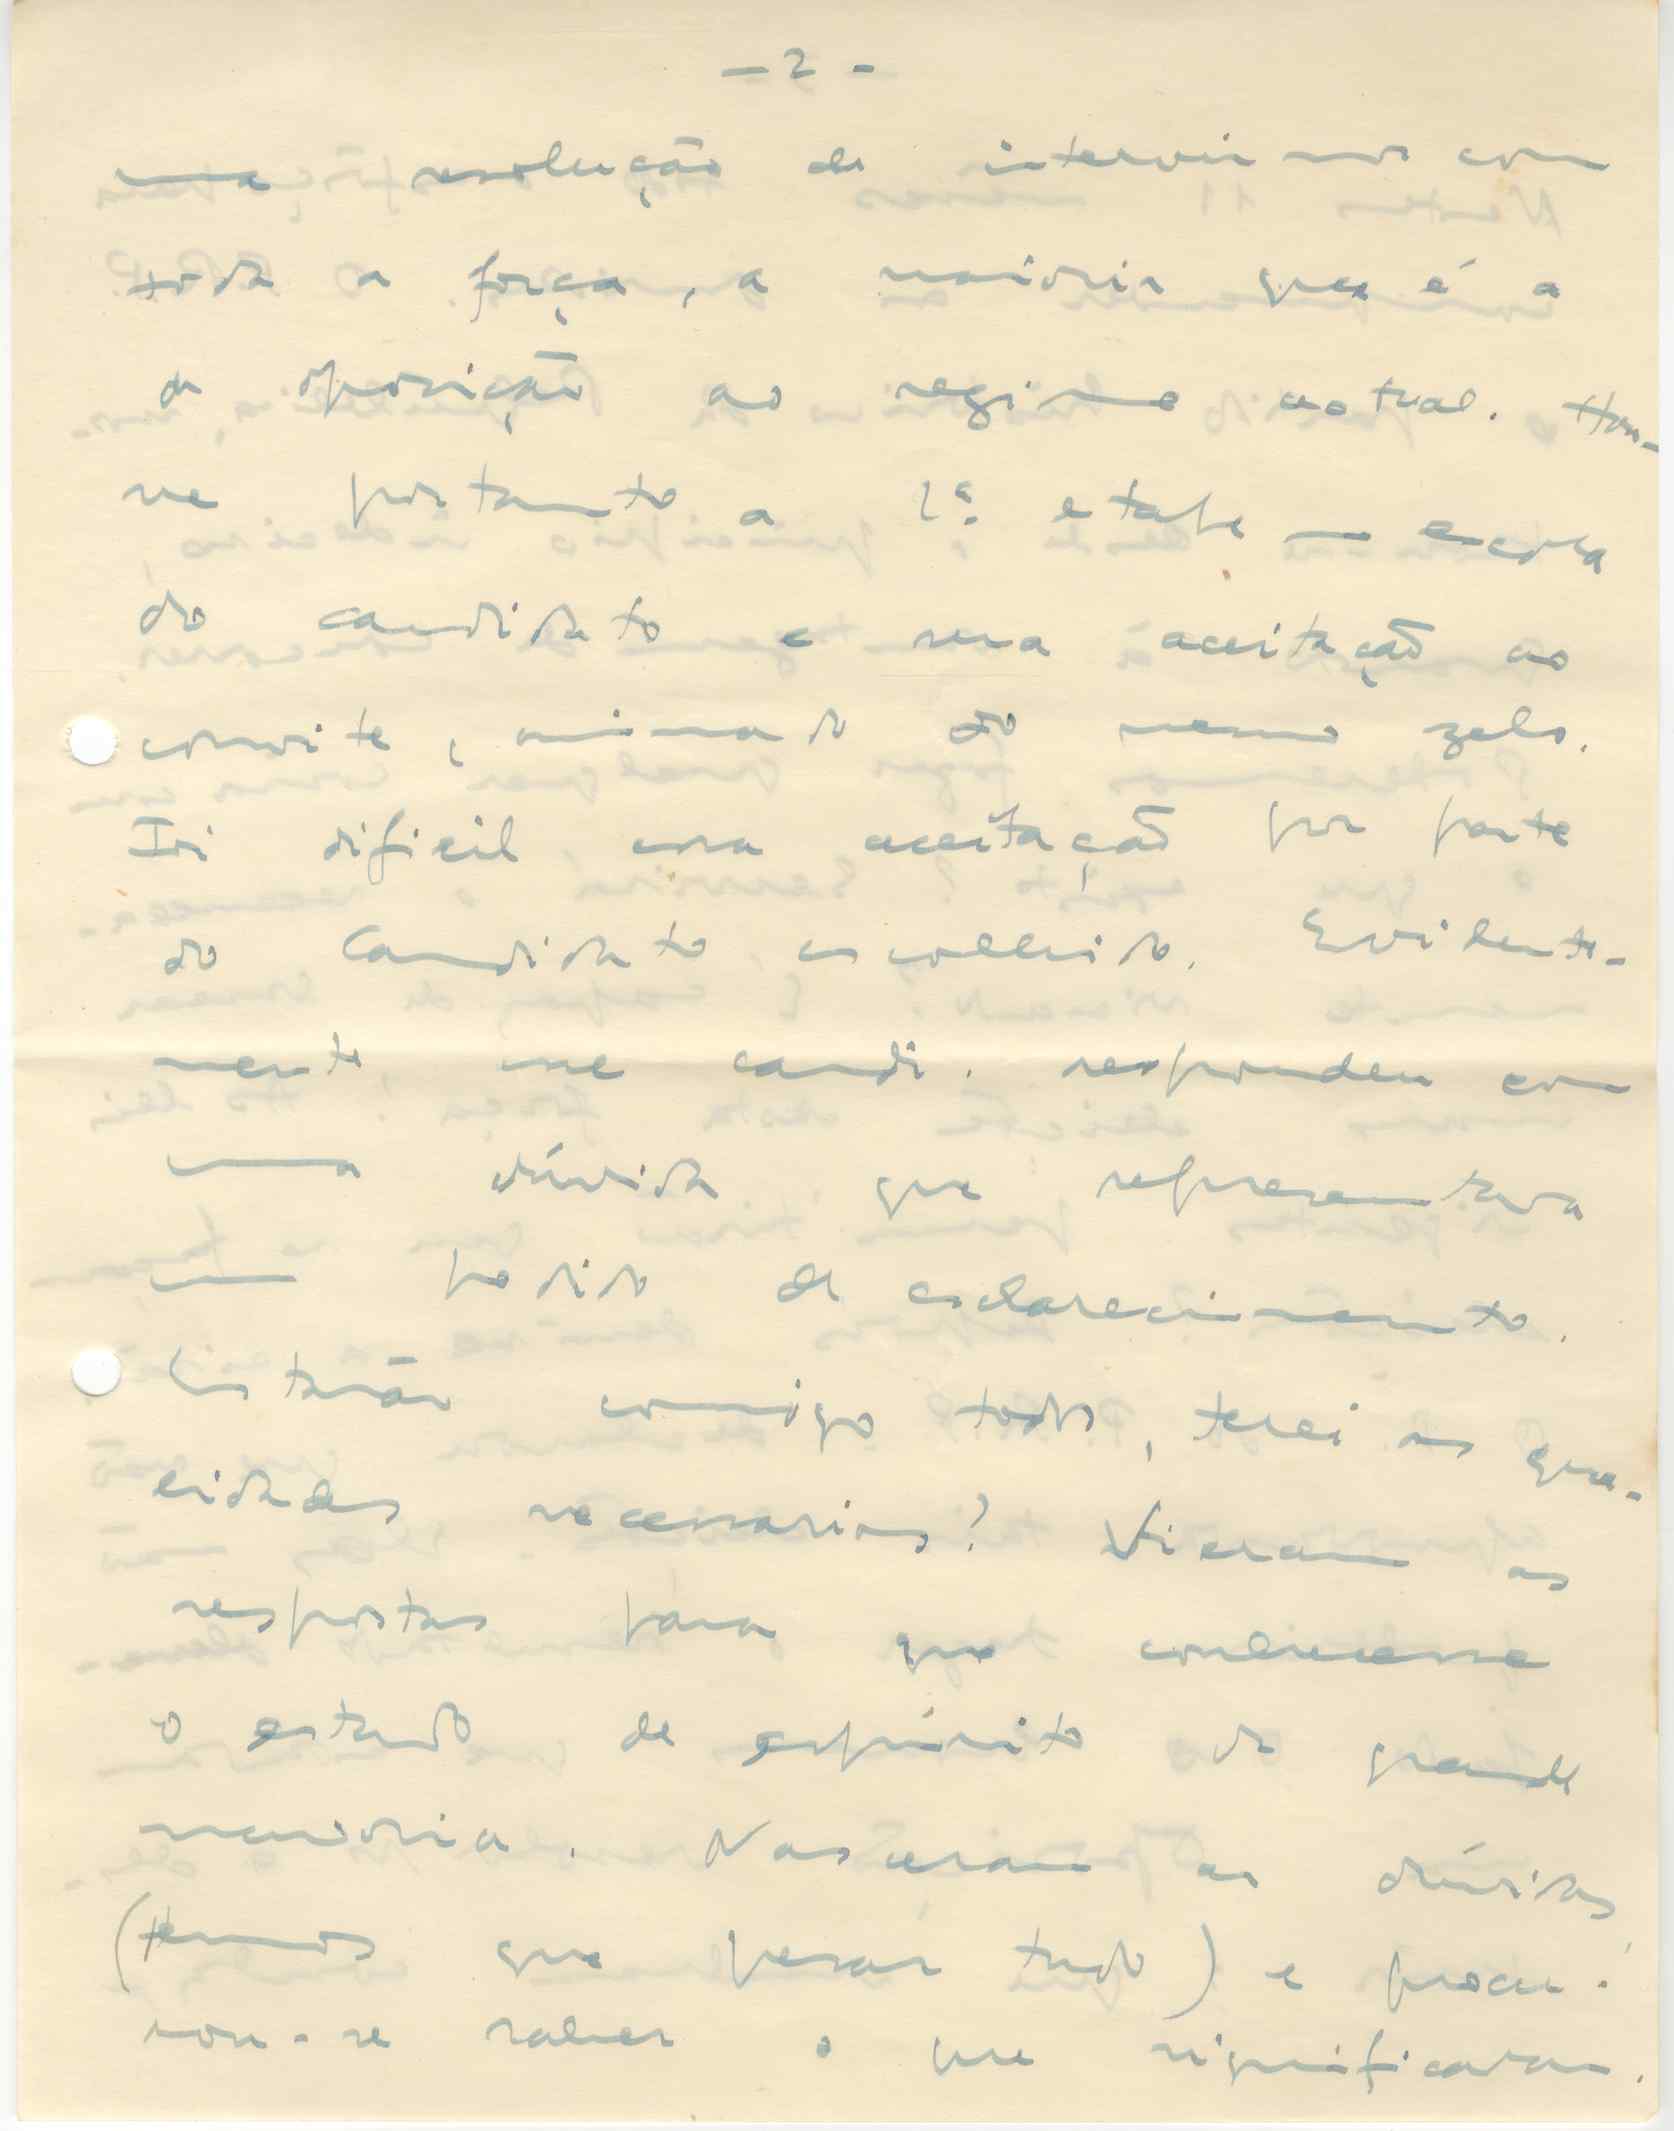 - 2 -
na resolução de intervirmos com
toda a força, a maioria que é a
da oposição ao regime actual. Hou-
ve portanto a 1ª etape — escolha
do candidato e sua aceitação ao
convite, animado do mesmo zelo.
Foi dificil essa aceitação por parte
do Candidato escolhido. Evidente-
mente esse candi. respondeu com
uma dúvida que representava
um pedido de esclarecimento.
Estarão comigo todos, terei as qua-
lidades necessarias? Vieram as
respostas para que conhecesse
o estado de espírito da grande
maioria. Nasceram as dúvidas
(temos que pesar tudo) e procu-
rou-se saber o que significavam.